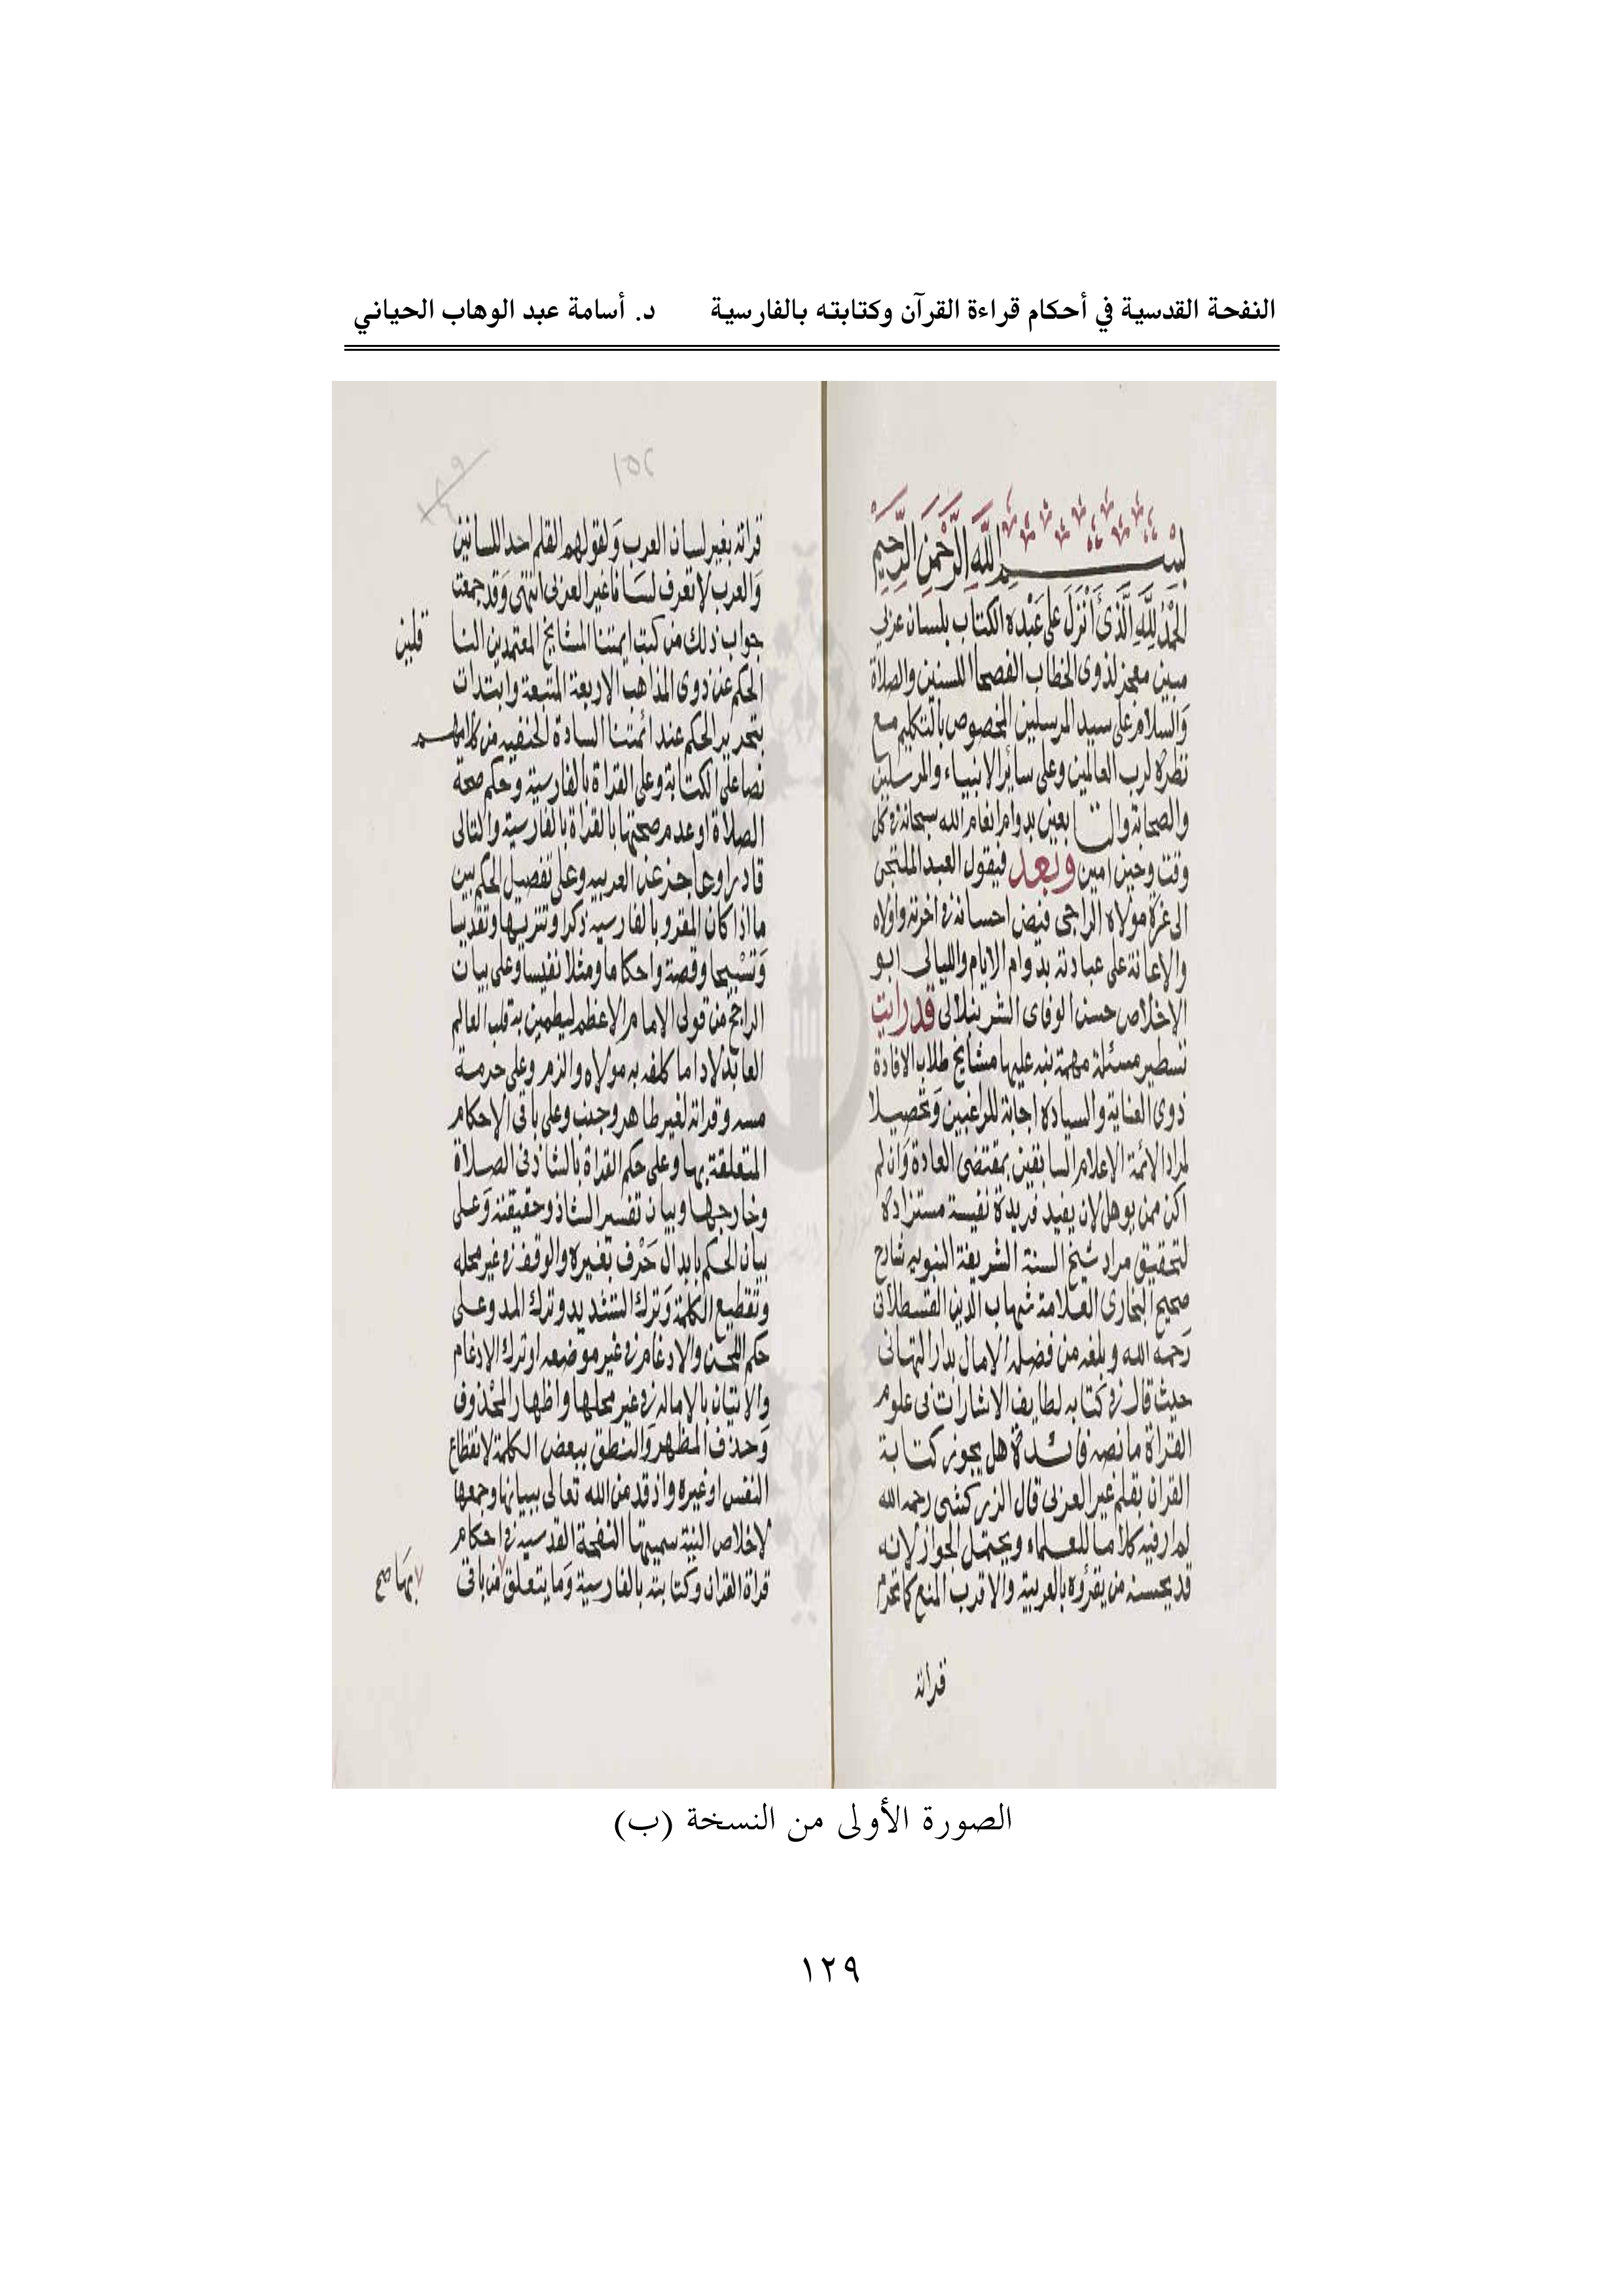 النفحة القدسية في أحكام قراءة القرآن وكتابته بالفارسية د. أسامة عبد الوهاب الحياني
بسم الله الرحمن الرحيم
الحمد لله الذي أنزل على عبده الكتاب بلسان عربي
مبين معجز لذوى الخطاب الفصحا اللسنين والصلاة
والسلام على سيد المرسلين المخصوص بالتكليم مع
نظره لرب العالمين وعلى سائر الانبياء والمرسلين
والصحابة والتابعين بدوام انعام الله سبحانه في كل
وقت وحين امين وبعد فيقول العبد الملتجى
الى عزة مولاه الراجى فيض احسانه في اخرته واولاه
والاعانة على عبادته بدوام الايام والليالى ابو
الاخلاص حسن الوفاى الشرنبلالى قد رايت
تسطير مسئلة مهمة نبه عليها مشايخ طلاب الافادة
ذوى العناية والسيادة اجابة للراغبين وتحصيلا
لمراد الائمة الاعلام السابقين بمقتضى العادة وان لم
اكن ممن يوهل لان يفيد فريدة نفيسة مستزادة
لتحقيق مراد شيخ السنة الشريفة النبويه شارح
صحيح البخارى العلامة شهاب الدين القسطلانى
رحمه الله وبلغه من فضله الامال بدار التهانى
حيث قال في كتابه لطايف الاشارات فى علوم
القراة ما نصه فائدة هل يجوز كتابة
القران بقلم غير العربى قال الزركشى رحمه الله
لم ار فيه كلاما للعلماء ويحتمل الجواز لانه
قد يحسنه من يقرؤه بالعربية والاقرب المنع كما تحرم
قراته
١٥٢
قراته بغير لسان العرب ولقولهم القلم احد اللسانين
والعرب لا تعرف لسانا غير العربى انتهى وقد جمعت
جواب ذلك من كتب ايمتنا المشايخ المعتمدين النا
قلين
الحكم عن ذوى المذاهب الاربعة المتبعة وابتدات
بتحرير الحكم عند ائمتنا السادة الحنفيه من كلامهم
نصا على الكتابة وعلى القراة بالفارسية وحكم صحة
الصلاة او عدم صحتها بالقراة بالفارسية والتالى
قادرا وعاجز عن العربيه وعلى تفصيل الحكم بين
ما اذا كان المقرو بالفارسيه ذكرا وتنزيها وتقديسا
وتسبيحا وقصة واحكاما ومثلا نفيسا وعلى بيان
الراجح من قولى الامام الاعظم ليطمين به قلب العالم
العابد لادا ما كلفه به مولاه والزم وعلى حرمة
مسه وقراته لغير طاهر وجنب وعلى باقى الاحكام
المتعلقة بها وعلى حكم القراة بالشاذ فى الصلاة
وخارجها وبيان تفسير الشاذ وحقيقته وعلى
بيان الحكم بابدال حرف بغيره والوقف في غير محله
وتقطيع الكلمة وترك التشديد وترك المد وعلى
حكم اللحن والادغام في غير موضعه او ترك الادغام
والاتيان بالاماله في غير محلها واظهار المحذوف
وحذف المظهر والنطق ببعض الكلمة لانقطاع
النفس او غيره واذ قد من الله تعالى ببيانها وجمعها
لاخلاص النية سميتها النفحة القدسيه في احكام
قراة القران وكتابته بالفارسية وما يتعلق من باقى
بها صح
الصورة الأولى من النسخة (ب)
١٢٩